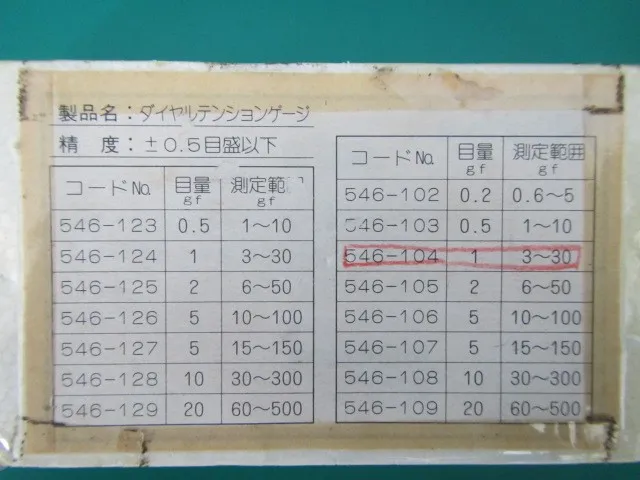 製品名：ダイヤルテンションゲージ
精　度：±0.5目盛以下
コードNo. 目量gf 測定範
gf
546-123 0.5 1～10
546-124 1 3～30
546-125 2 6～50
546-126 5 10～100
546-127 5 15～150
546-128 10 30～300
546-129 20 60～500
コードNo. 目量gf 測定範囲
gf
546-102 0.2 0.6～5
546-103 0.5 1～10
546-104 1 3～30
546-105 2 6～50
546-106 5 10～100
546-107 5 15～150
546-108 10 30～300
546-109 20 60～500